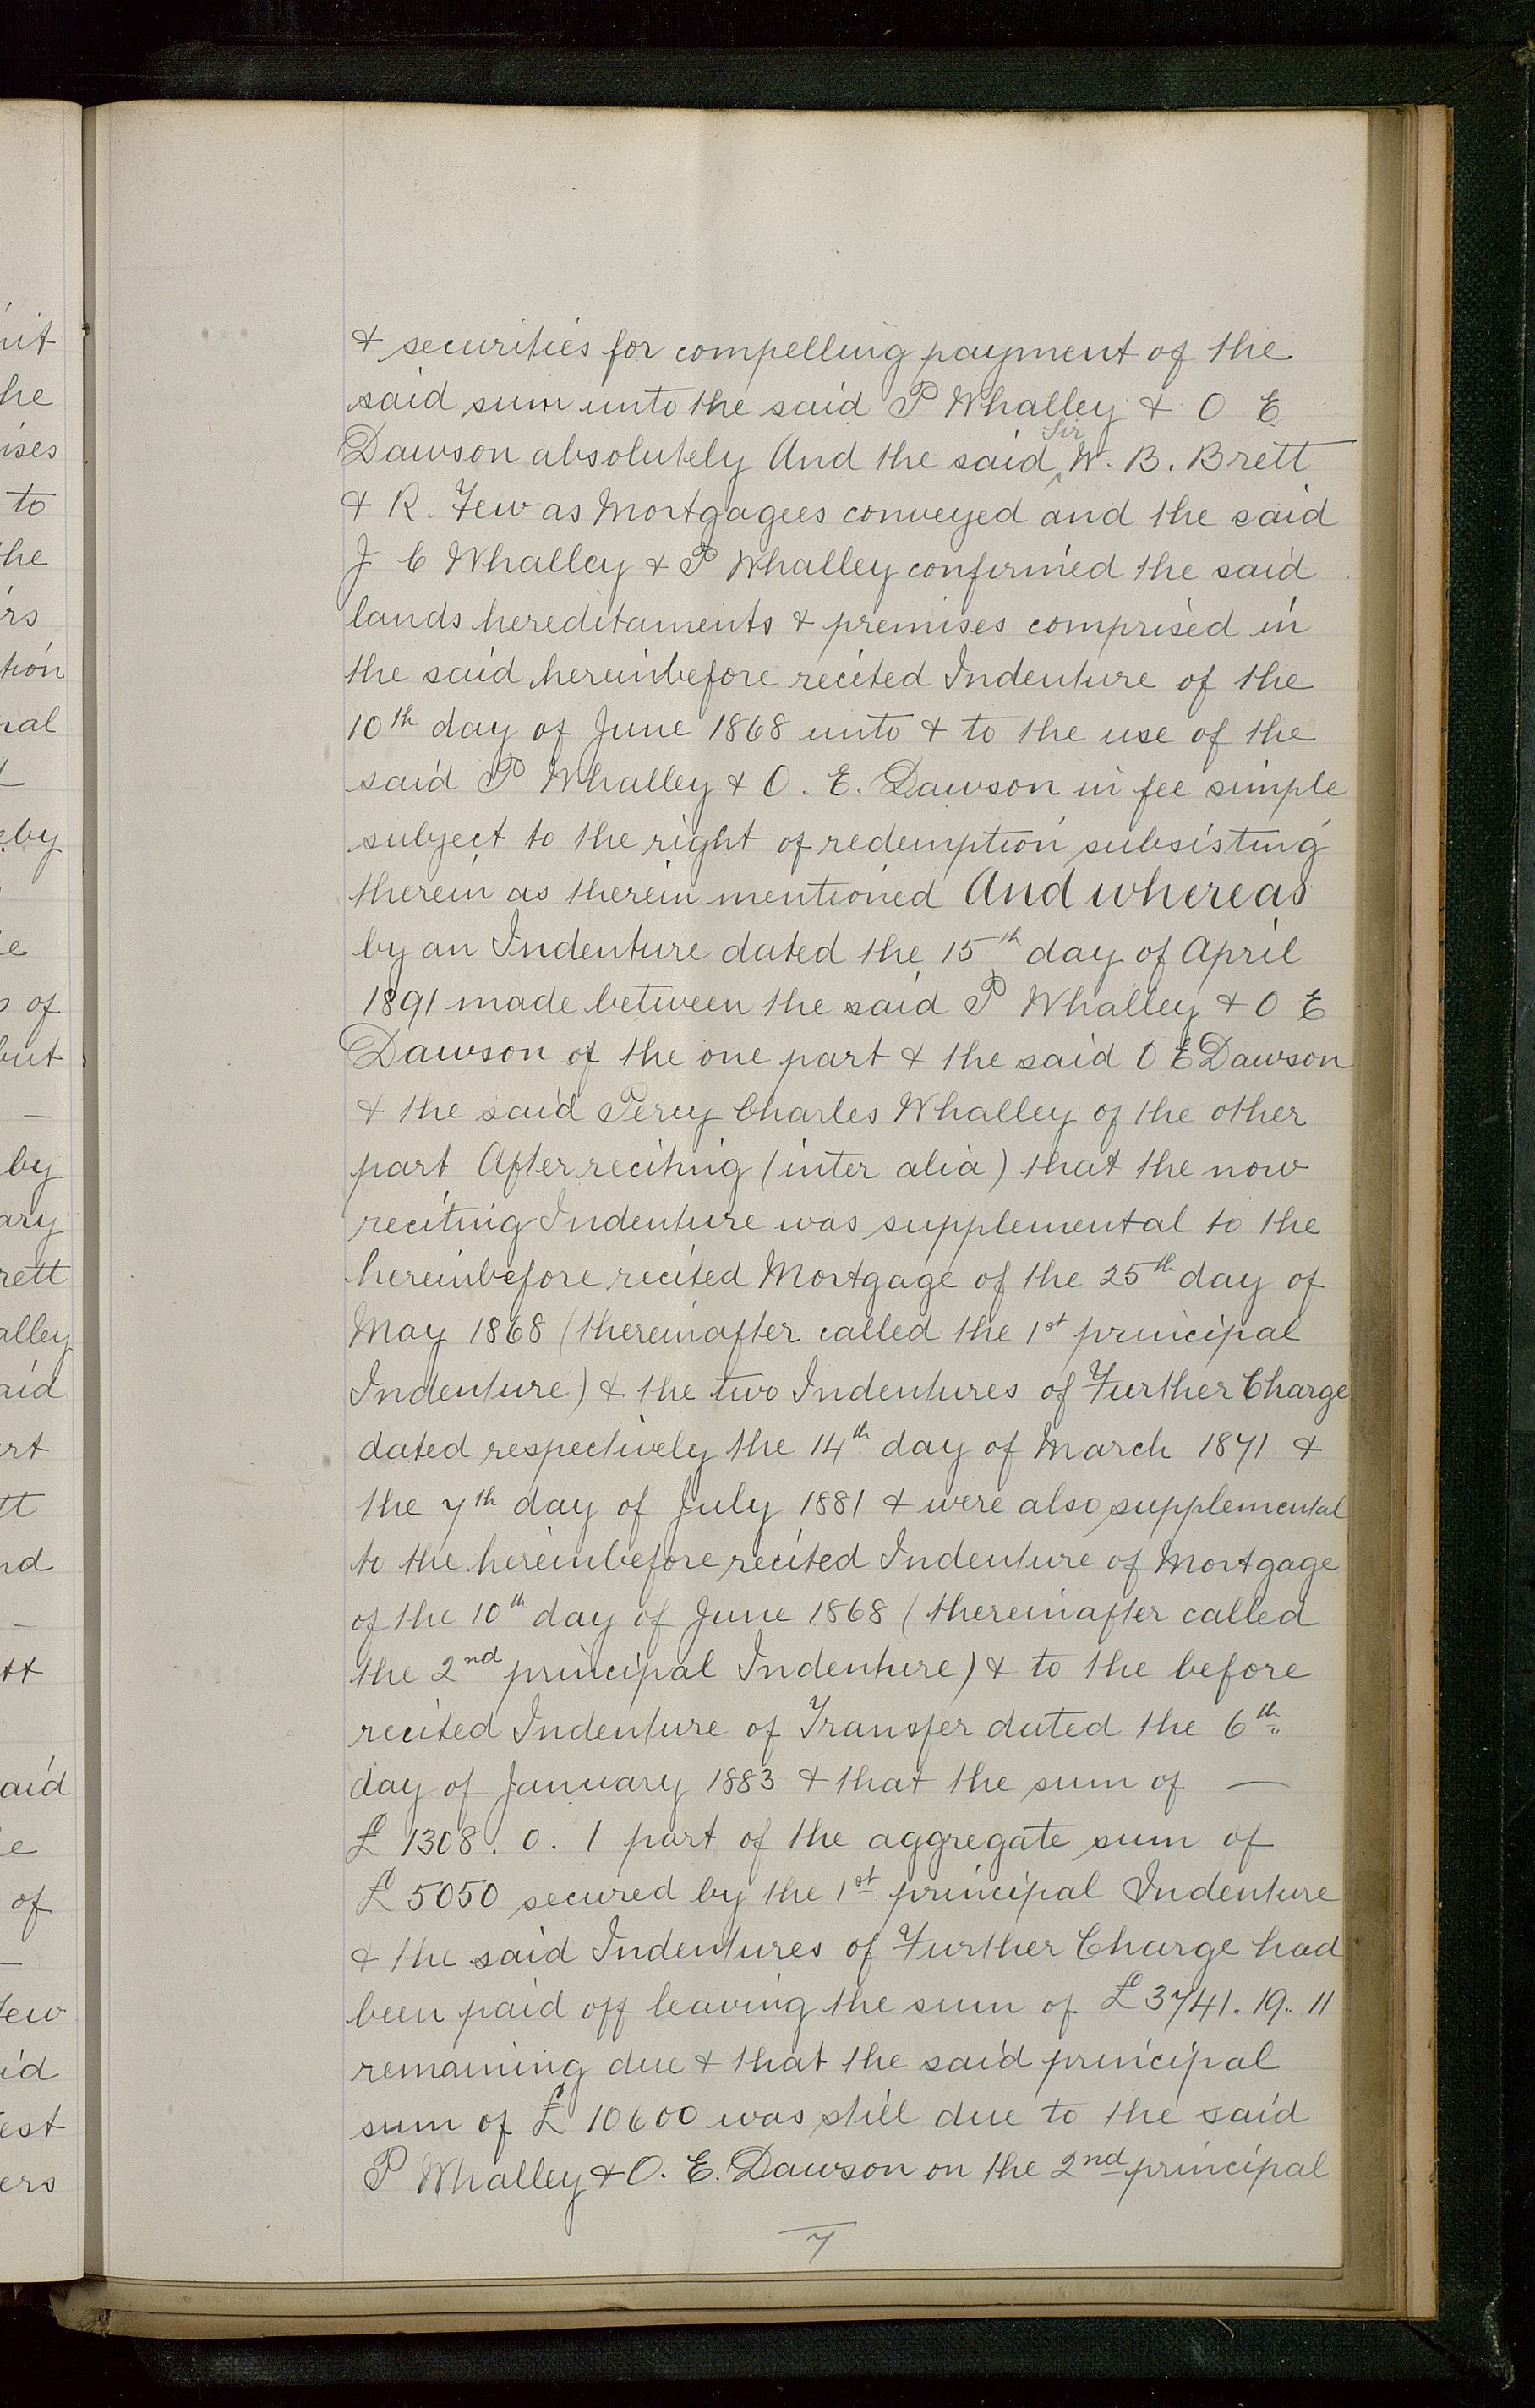 & securities for compelling payment of the
said sum unto the said P Whalley & O E
Dawson absolutely And the said ^Sir W. B. Brett
& R. Few as Mortgagees conveyed and the said
J C Whalley & P Whalley confirmed the said
lands hereditaments & premises comprised in
the said hereinbefore recited Indenture of the
10th day of June 1868 unto & to the use of the
said P Whalley & O. E. Dawson in fee simple
subject to the right of redemption subsisting
therein as therein mentioned And whereas
by an Indenture dated the 15th day of April
1891 made between the said P Whalley & O E
Dawson of the one part & the said O E Dawson
& the said Percy Charles Whalley of the other
part After reciting (inter alia) that the now
reciting Indenture was supplemental to the
hereinbefore recited Mortgage of the 25th day of
May 1868 (thereinafter called the 1st principal
Indenture) & the two Indentures of Further Charge
dated respectively the 14th day of March 1871 &
the 7th day of July 1881 & were also supplemental
to the hereinbefore recited Indenture of Mortgage
of the 10th day of June 1868 (thereinafter called
the 2nd principal Indenture) & to the before
recited Indenture of Transfer dated the 6th
day of January 1883 & that the sum of —
£ 1308. 0. 1 part of the aggregate sum of
£ 5050 secured by the 1st principal Indenture
& the said Indentures of Further Charge had
been paid off leaving the sum of £3741. 19. 11
remaining due & that the said principal
sum of £ 10600 was still due to the said
P Whalley & O. E. Dawson on the 2nd principal
7